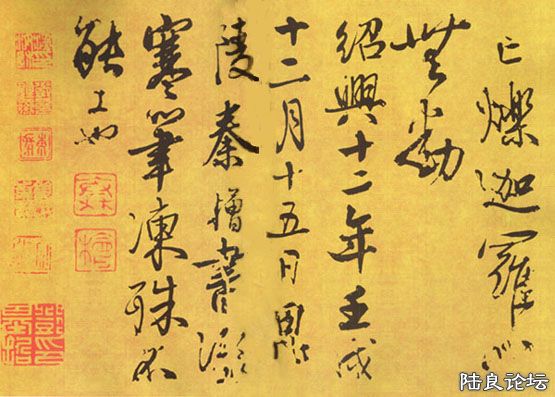 亡爍迦羅心
無動
紹興十二年壬戌
十二月十五日
陵秦檜書深
寒筆凍殊不
能工也
陆良论坛